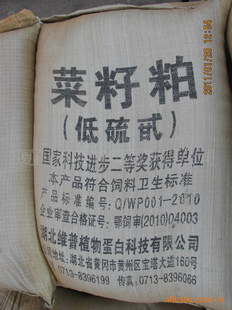 2011/01/20 12:54
菜籽粕
(低硫甙)
国家科技进步二等奖获得单位
本产品符合饲料卫生标准
产品标准编号:Q/WP001-2010
企业审查合格证号:鄂饲审(2010)04003
湖北维普植物蛋白科技有限公司
公司地址:湖北省黄冈市黄州区宝塔大道160号
0713-8396199 传真:0713-8396066